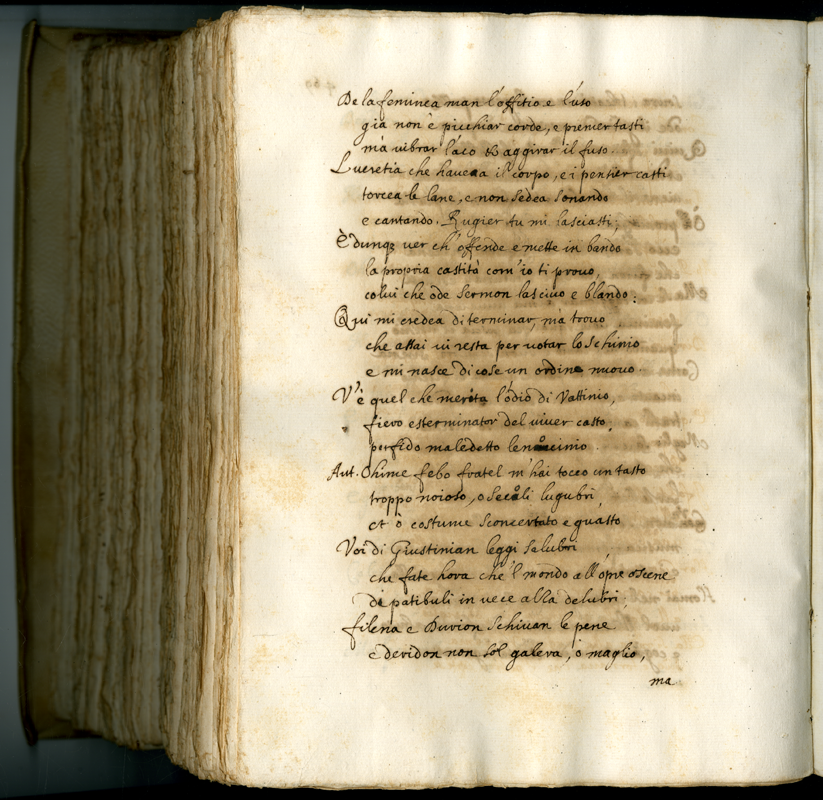 De la feminea man l'offitio e l'uso
già non è picchiar corde, e premer tasti
mà vibrar l'aco & aggirar il fuso.
Lucretia che haveva il corpo, e i pensier casti
torcea le lane, e non sedea sonando
e cantando. Rugier tu mi lasciasti;
È dunq; ver ch'offende e mette in bando
la propria castità com'io ti provo,
colui che ode sermon lascivo e blando:
Qui mi credea di terminar, ma trovo
che assai vi resta per votar lo schinio
e mi nasce di cose un ordine nuovo.
V'è quel che merita l'odio di Vattinio,
fiero esterminator del viver casto,
perfido maledetto lenocinio
Aut. Ohime febo fratel m'hai tocco un tasto
troppo noioso, o secoli lugubri,
et ò costume sconcertato e guasto
Voi di Giustinian leggi salubri
che fate hora che'l mondo all'opre oscene
di patibuli in vece alza delubri,
filena e Durion schivan le pene
e deridon non sol galera, o maglio,
ma